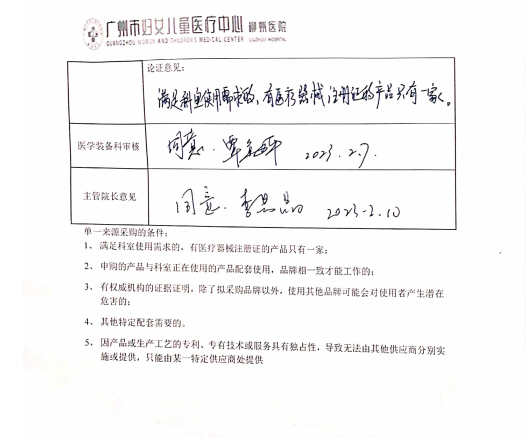 广州市妇女儿童医疗中心 柳州医院
GUANGZHOU WOMEN AND CHILDREN'S MEDICAL CENTER LIUZHOU HOSPITAL
论证意见:
满足科室使用需求的,有医疗器械注册证的产品只有一家。
医学装备科审核 同意. 2023.2.7.
主管院长意见 同意. 2023-2.10
单一来源采购的条件:
1、 满足科室使用需求的,有医疗器械注册证的产品只有一家;
2、 申购的产品与科室正在使用的产品配套使用,品牌相一致才能工作的;
3、 有权威机构的证据证明,除了拟采购品牌以外,使用其他品牌可能会对使用者产生潜在
危害的;
4、 其他特定配套需要的。
5、 因产品或生产工艺的专利、专有技术或服务具有独占性,导致无法由其他供应商分别实
施或提供,只能由某一特定供应商处提供